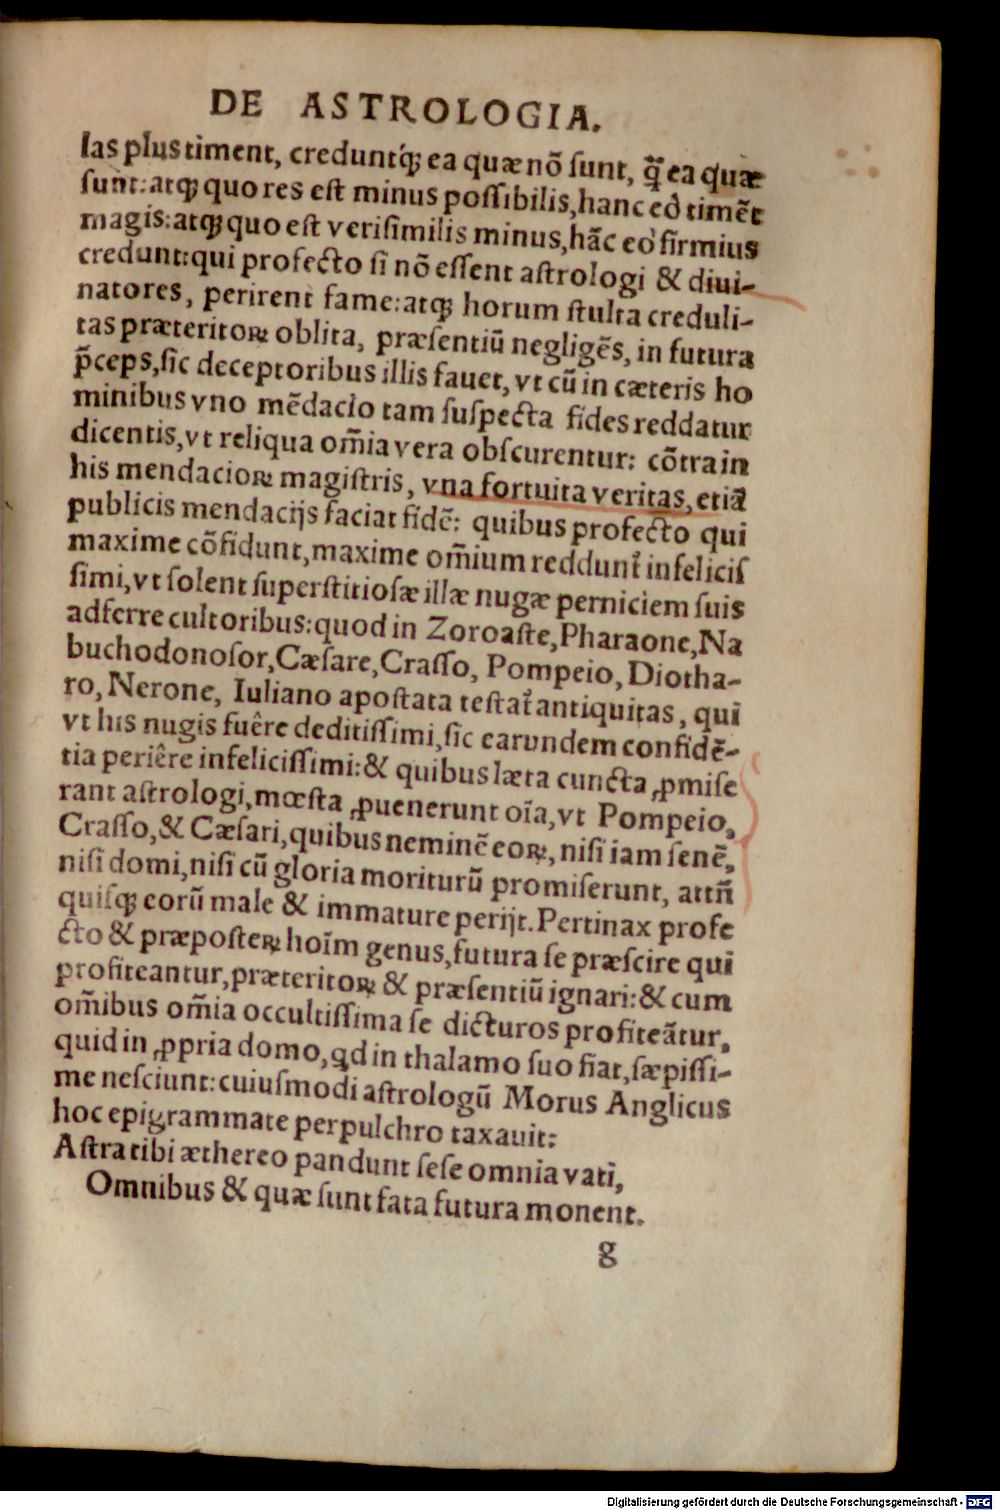 DE ASTROLOGIA.
las plus timent, creduntq́ꝫ ea quæ nõ sunt, q̃ ea quæ
sunt: atqꝫ quo res est minus possibilis, hanc eò timẽt
magis: atqꝫ quo est verisimilis minus, hãc eò firmius
credunt: qui profecto si nõ essent astrologi & diui-
natores, perirent fame: atqꝫ horum stulta creduli-
tas præteritoꝝ oblita, præsentiũ negligẽs, in futura
p̃ceps, sic deceptoribus illis fauet, vt cũ in cæteris ho
minibus vno mẽdacio tam suspecta fides reddatur
dicentis, vt reliqua om̃ia vera obscurentur: cõtra in
his mendacioꝝ magistris, vna fortuita veritas, etiã
publicis mendacijs faciat fidẽ: quibus profecto qui
maxime cõfidunt, maxime om̃ium reddunt᷑ infelicis
simi, vt solent superstitiosæ illæ nugæ perniciem suis
adferre cultoribus: quod in Zoroaste, Pharaone, Na
buchodonosor, Cæsare, Crasso, Pompeio, Diotha-
ro, Nerone, Iuliano apostata testat᷑ antiquitas, qui
vt his nugis fuêre deditissimi, sic earundem confidẽ-
tia periêre infelicissimi: & quibus læta cuncta ꝓmise
rant astrologi, mœsta ꝓuenerunt oĩa, vt Pompeio,
Crasso, & Cæsari, quibus neminẽ eoꝝ, nisi iam senẽ,
nisi domi, nisi cũ gloria moriturũ promiserunt, attñ
quisqꝫ eorũ male & immature perijt. Pertinax profe
cto & præposteꝝ hoĩm genus, futura se præscire qui
profiteantur, præteritoꝝ & præsentiũ ignari: & cum
om̃ibus om̃ia occultissima se dicturos profiteãtur,
quid in ꝓpria domo, qd in thalamo suo fiat, sæpissi-
me nesciunt: cuiusmodi astrologũ Morus Anglicus
hoc epigrammate perpulchro taxauit:
Astra tibi æthereo pandunt sese omnia vati,
Omnibus & quæ sunt fata futura monent.
g
Digitalisierung gefördert durch die Deutsche Forschungsgemeinschaft - DFG